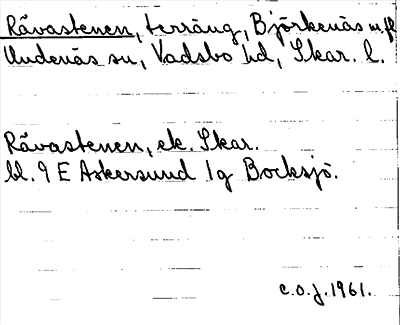 Rävastenen, terräng, Björkenäs m.fl
Undenäs sn, Vadsbo hd, Skar. l.
Rävastenen, ek. Skar.
bl. 9 E Askersund 1g Bocksjö.
c.o.j. 1961.